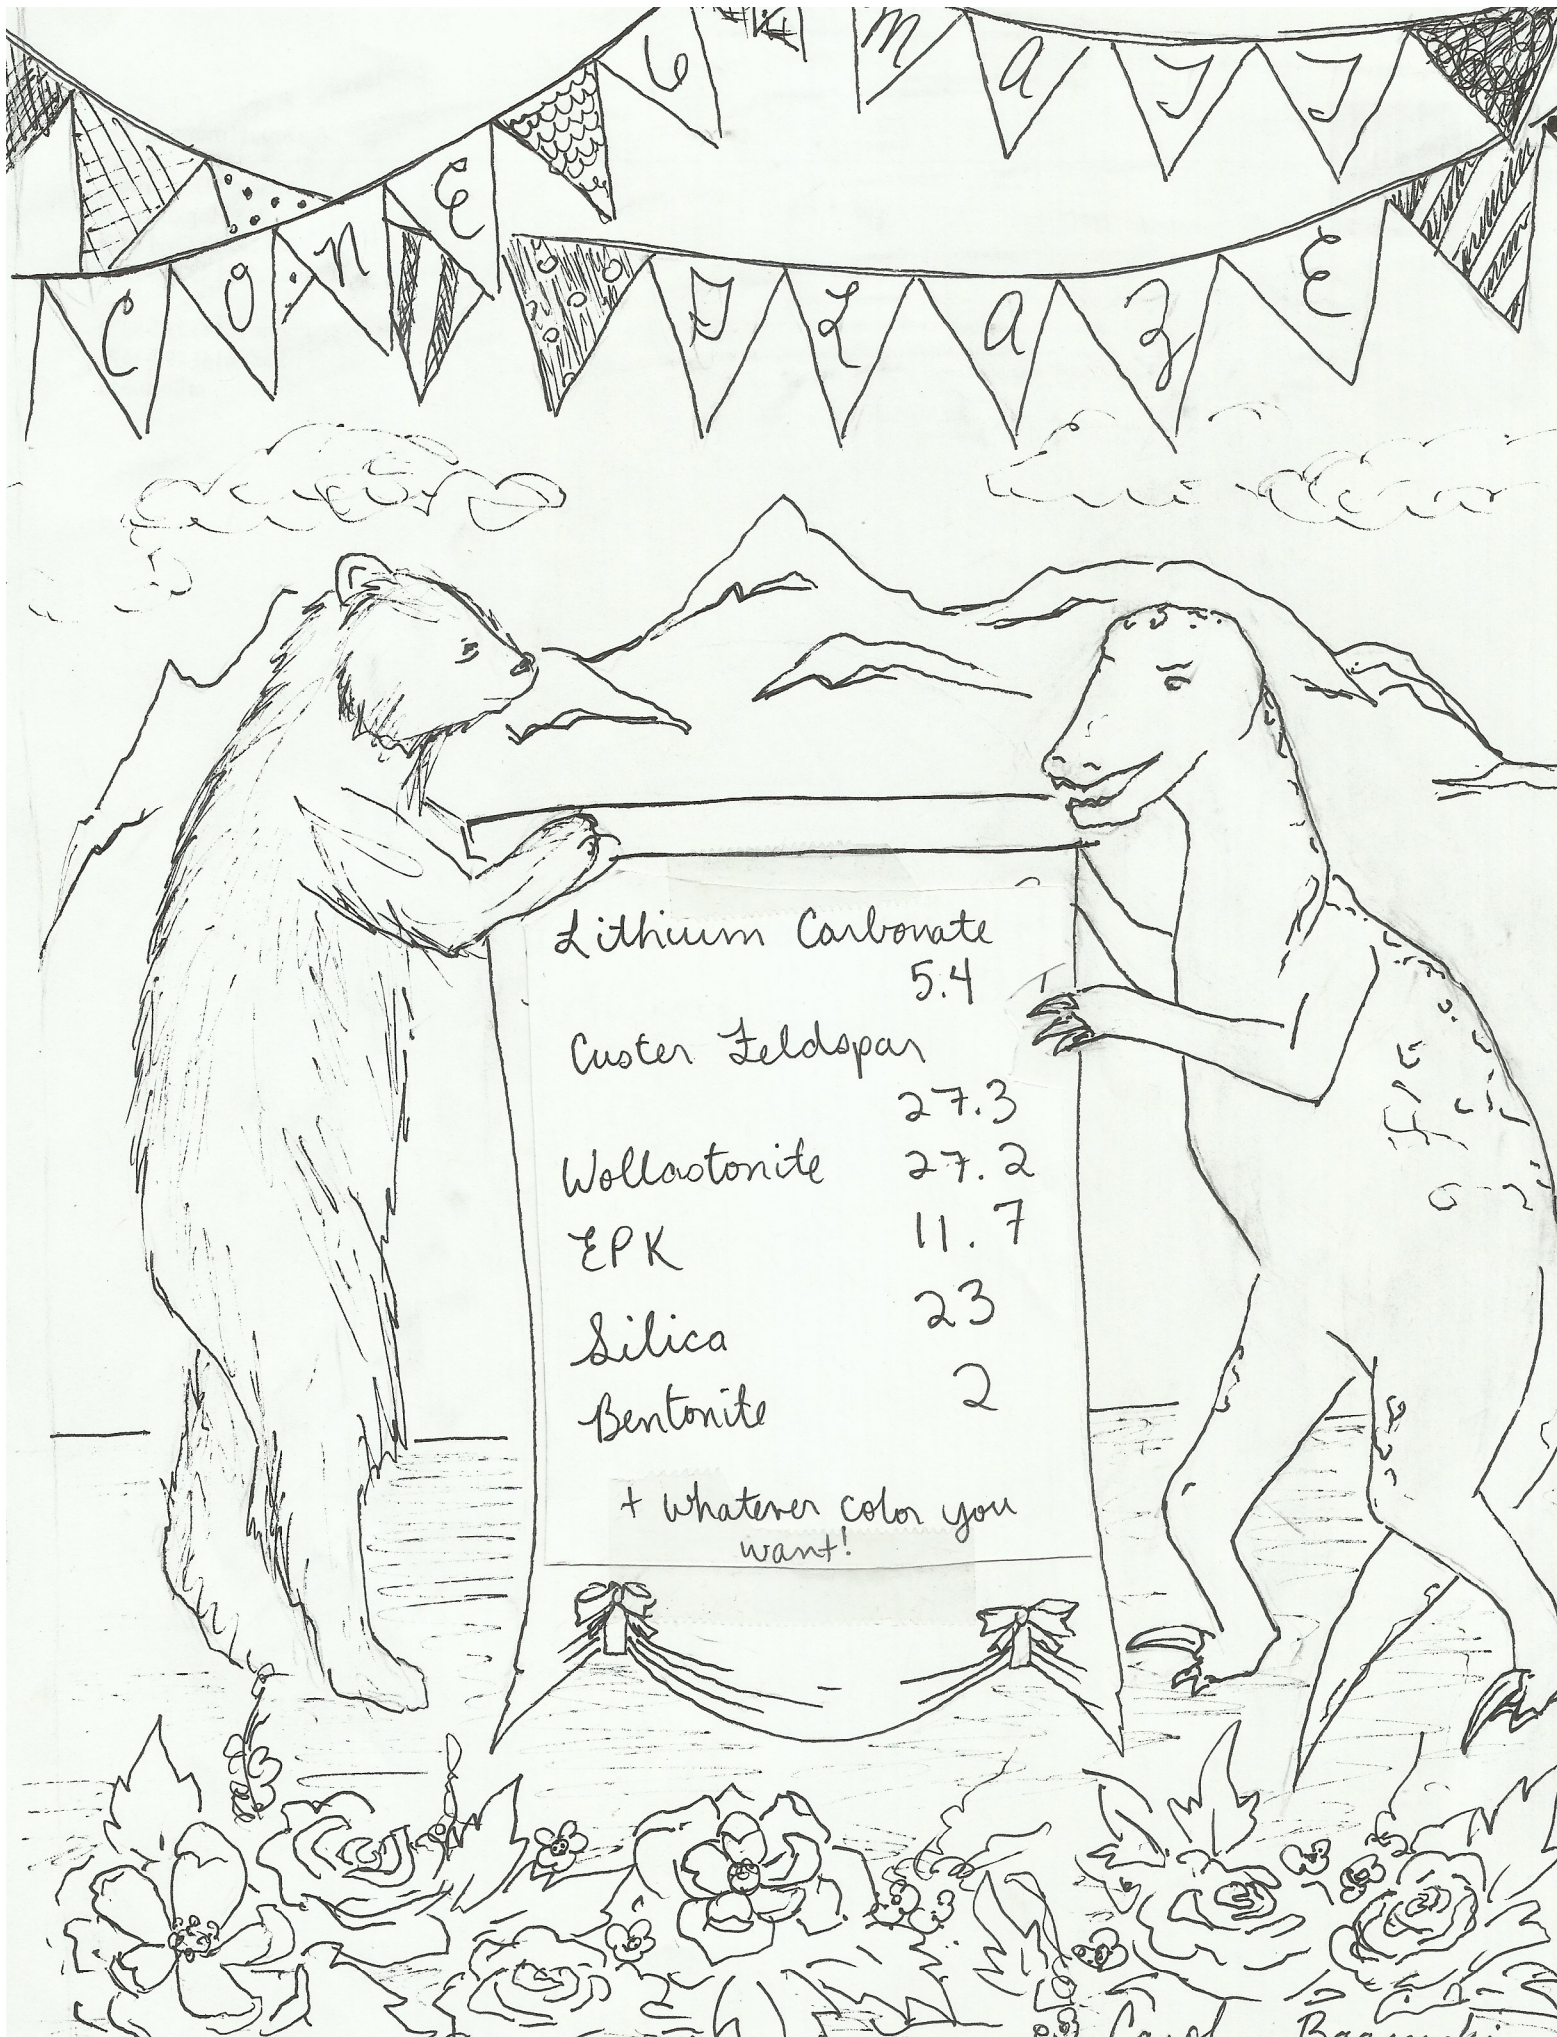 CONE 6 MATT
GLAZE
Lithium Carbonate
5.4
Custer Feldspar
27.3
Wollastonite 27.2
EPK 11.7
Silica 23
Bentonite 2
+ whatever color you
want!